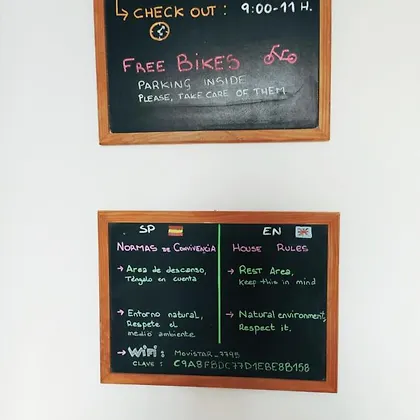 CHECK OUT : 9:00-11 H.
FREE BIKES
PARKING INSIDE
PLEASE, TAKE CARE OF THEM
SP
NORMAS DE CONVIVENCIA
→ Area de descanso,
Téngalo en cuenta
→ Entorno natural,
Respete el
medio ambiente
EN
HOUSE RULES
→ REST Area,
Keep this in mind
→ Natural environment,
Respect it.
→ WiFi : MOVISTAR_7795
CLAVE : C9A8F8DC77D1EBE8B158